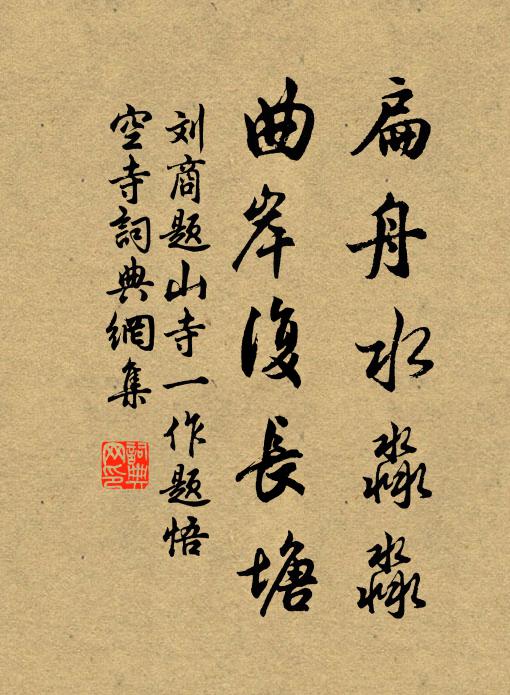 扁舟水淼淼
曲岸復長塘
刘商题山寺一作题悟
空寺詞典網集
詞典網印